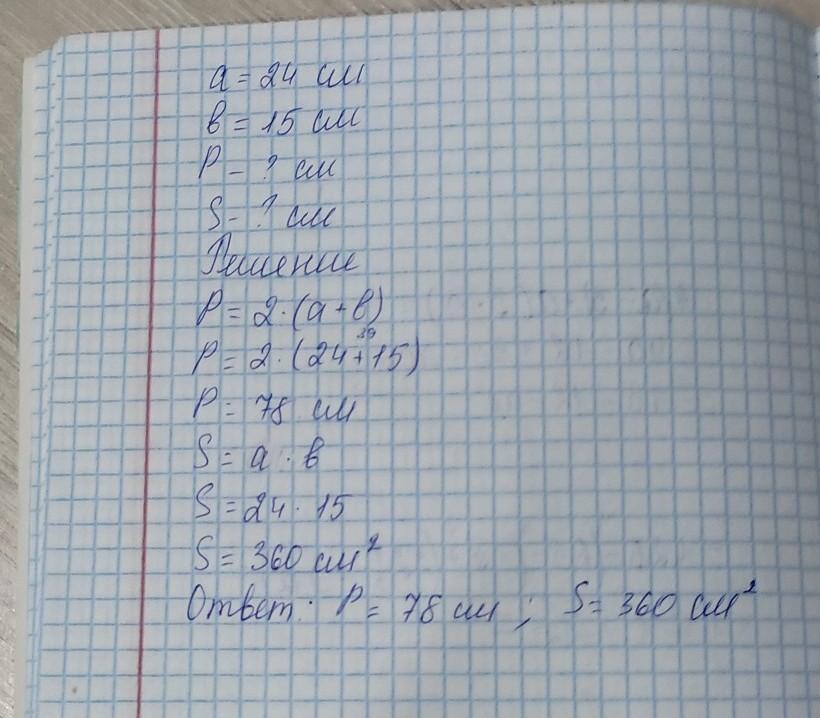 a = 24 см
в = 15 см
P - ? см
S - ? см
Решение
P = 2·(a+в)
39
P = 2·(24+15)
P = 78 см
S = a · в
S = 24 · 15
S = 360 см²
Ответ: P = 78 см ; S = 360 см²